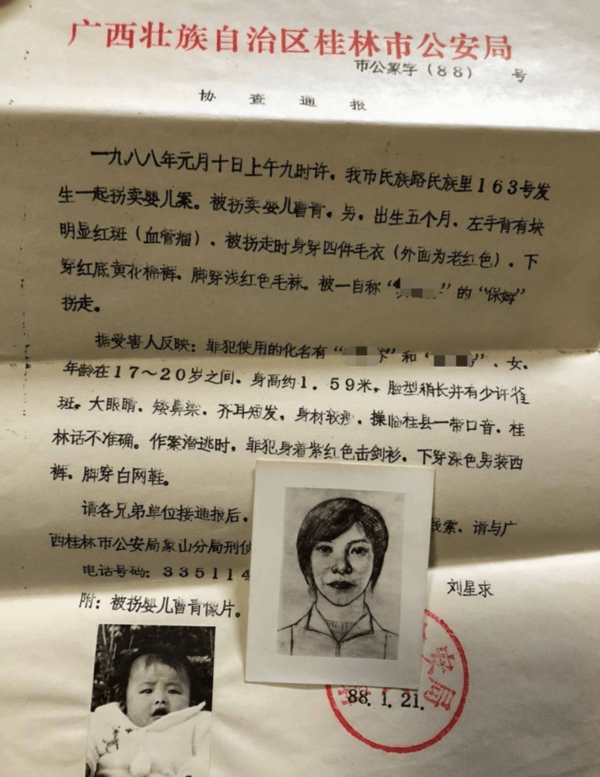 广西壮族自治区桂林市公安局
市公象字（88） 号
协查通报
一九八八年元月十日上午九时许，我市民族路民族里163号发
生一起拐卖婴儿案。被拐卖婴儿曹青，男，出生五个月，左手背有块
明显红斑（血管瘤），被拐走时身穿四件毛衣（外面为老红色），下
穿红底黄花棉裤，脚穿浅红色毛袜。被一自称“ ”的“保姆”
拐走。
据受害人反映：罪犯使用的化名有“ ”和“ ”，女，
年龄在17～20岁之间，身高约1.59米，脸型稍长并有少许雀
斑，大眼睛，矮鼻梁，齐耳短发，身材较瘦，操临桂县一带口音，桂
林话不准确。作案潜逃时，罪犯身着紫红色击剑衫，下穿深色男装西
裤，脚穿白网鞋。
请各兄弟单位接通报后， 线索，请与广
西桂林市公安局象山分局刑侦
电话号码：335114 刘星求
附：被拐婴儿曹青像片。
88.1.21.